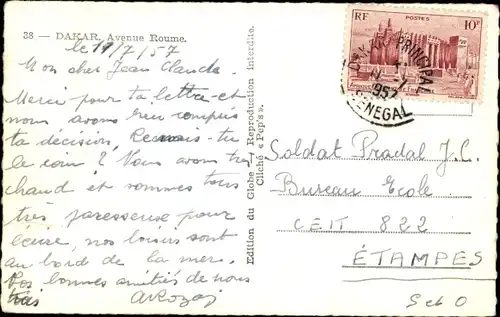 38 — DAKAR. Avenue Roume.
le 11/7/57
Mon cher Jean Claude.
Merci pour ta lettre et
nous avons bien compris
ta décision, tu
le coin ? Nous avons très
chaud et sommes tous
très paresseuse pour
écrire, nos loisirs sont
au bord de la mer.
bonnes amitiés de nous
tous
Edition du Globe — Reproduction Interdite.
Cliché « Pop's ».
RF POSTES 10F
DAKAR PRINCIPAL
1957
SENEGAL
Soldat Pradal J.C.
Bureau Ecole
CEIT 822
ÉTAMPES
S et O